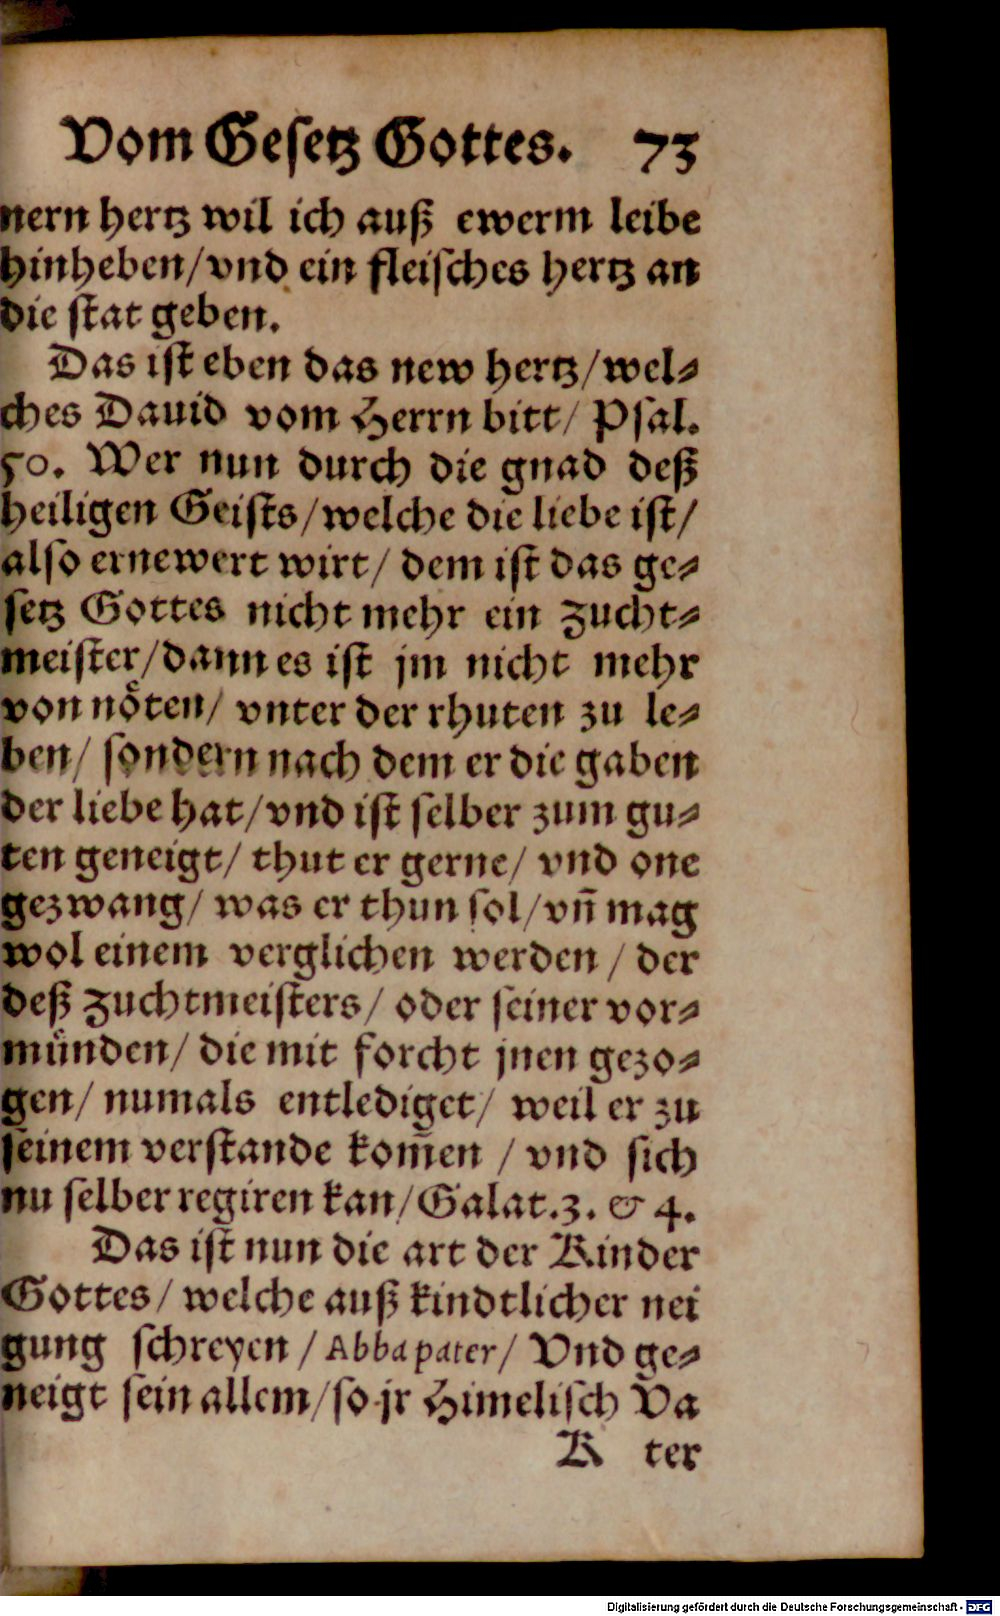 Vom Gesetz Gottes. 73
nern hertz wil ich auß ewerm leibe
hinheben/vnd ein fleisches hertz an
die stat geben.
Das ist eben das new hertz/wel⸗
ches Dauid vom Herrn bitt/ Psal.
50. Wer nun durch die gnad deß
heiligen Geists/welche die liebe ist/
also ernewert wirt/ dem ist das ge⸗
setz Gottes nicht mehr ein zucht⸗
meister/dann es ist jm nicht mehr
von nöten/ vnter der rhuten zu le⸗
ben/ sondern nach dem er die gaben
der liebe hat/vnd ist selber zum gu⸗
ten geneigt/ thut er gerne/ vnd one
gezwang/ was er thun sol/vn̄ mag
wol einem verglichen werden / der
deß zuchtmeisters/ oder seiner vor⸗
münden/ die mit forcht jnen gezo⸗
gen/ numals entlediget/ weil er zu
seinem verstande kom̄en / vnd sich
nu selber regiren kan/Galat.3. & 4.
Das ist nun die art der Kinder
Gottes/ welche auß kindtlicher nei
gung schreyen / Abba pater/ Vnd ge⸗
neigt sein allem/so jr Himelisch Va
K ter
Digitalisierung gefördert durch die Deutsche Forschungsgemeinschaft - DFG